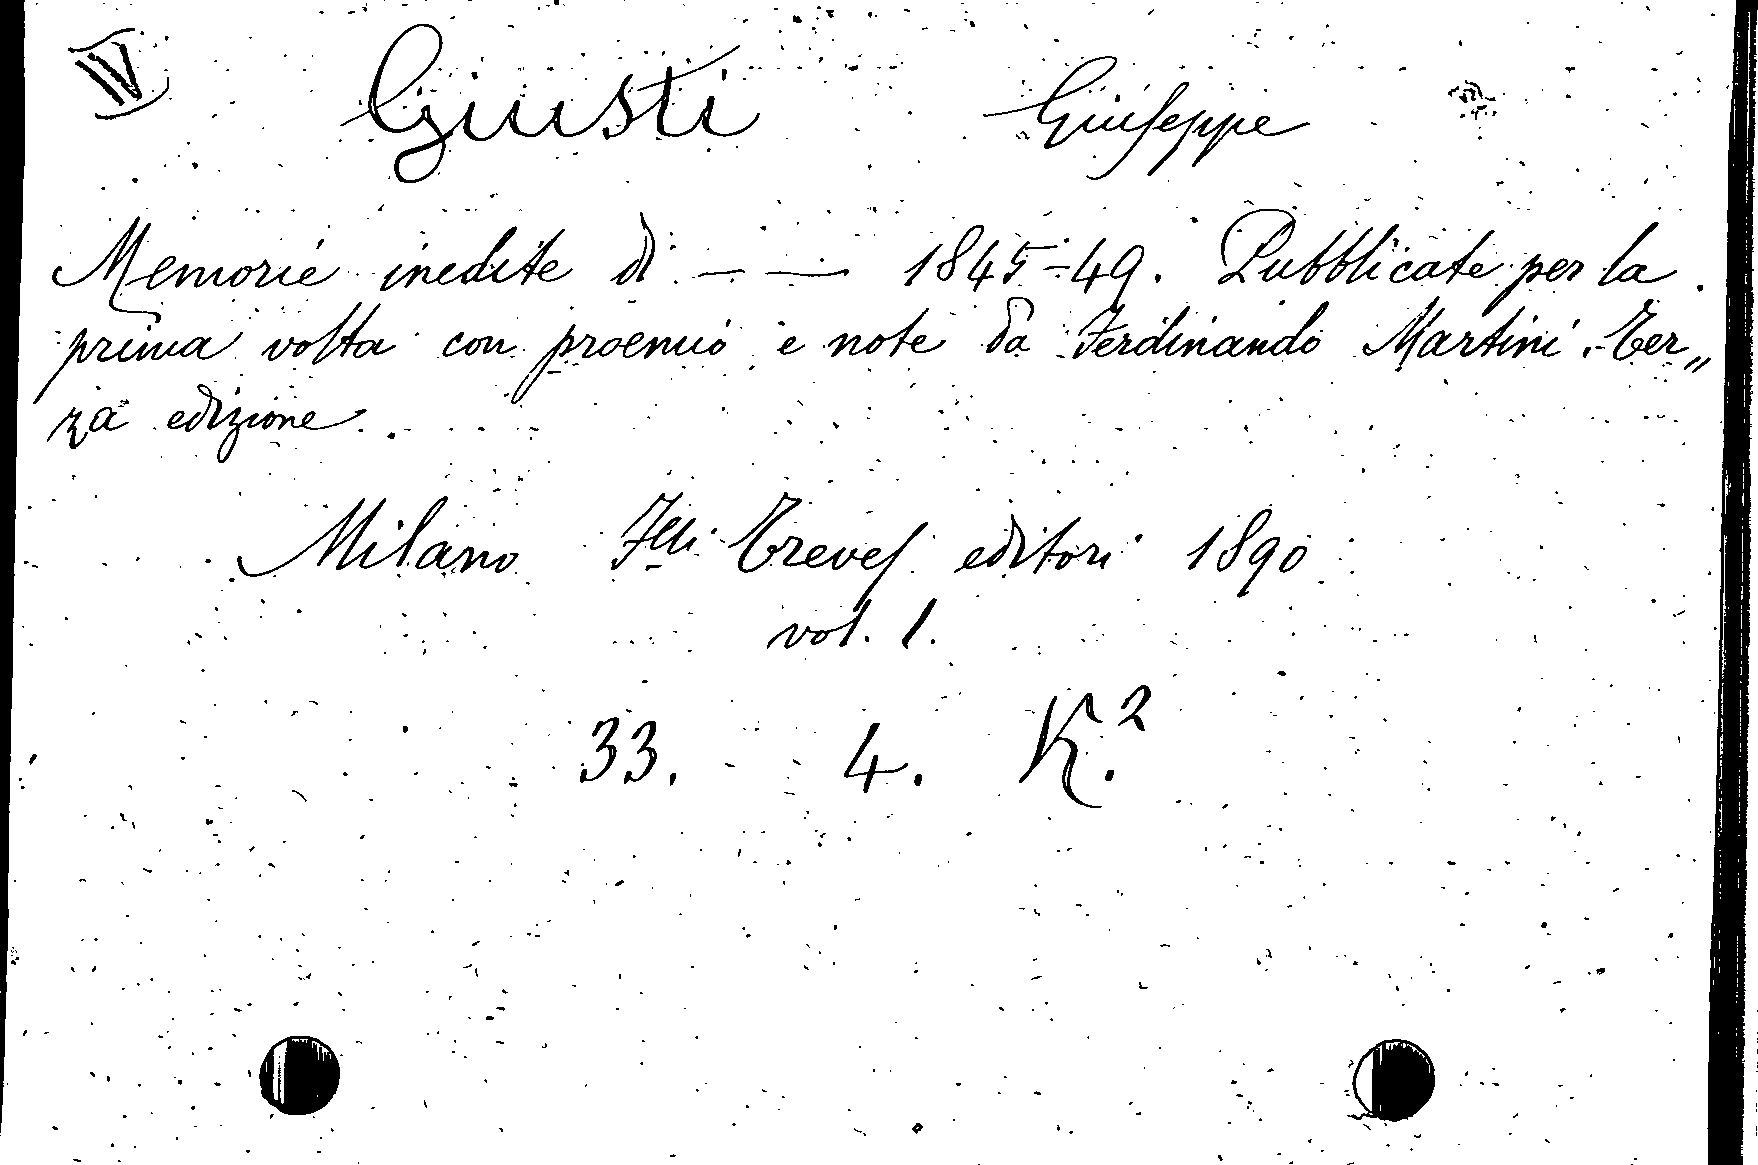 IV Giusti Giuseppe
Memorie inedite di — — 1845-49. Pubblicate per la
prima volta con proemio e note da Ferdinando Martini. Ter„
za edizione.
Milano Flli Treves editori 1890
vol. 1.
33. 4. K.²